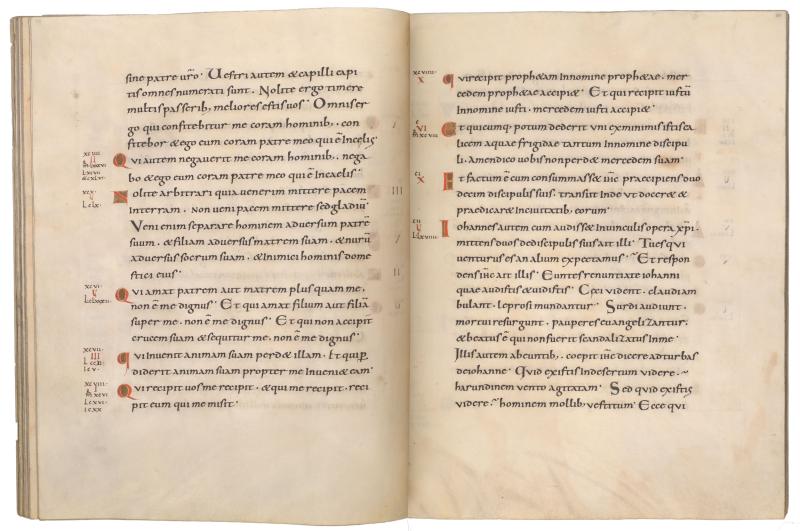 sine patre uro. Uestri autem & capilli capi
tis omnes numerati sunt. Nolite ergo timere
multis passerib; meliores estis uos. Omnis er
go qui confitebitur me coram hominib;. con
fitebor & ego eum coram patre meo qui ē Incelis
Qui autem negauerit me coram hominib;. nega
bo & ego eum coram patre meo qui ē Incaelis.
Nolite arbitrari quia uenerim mittere pacem
Interram. Non ueni pacem mittere sed gladiū.
Veni enim separare hominem aduersum patrē
suum. & filiam aduersus matrem suam. & nurū
aduersus socrum suam. & Inimici hominis dome
stici eius.
Qui amat patrem aut matrem plus quam me,
non ē me dignus. Et qui amat filium aut filiā
super me. non ē me dignus. Et qui non accipit
crucem suam & sequitur me. non ē me dignus.
qui Inuenit animam suam perd& illam. Et qui ꝑ
diderit animam suam propter me Inueni& eam.
Qui recipit uos me recipit. & qui me recipit. reci
pit eum qui me misit.
qui recipit proph&am Innomine proph&ae. mer
cedem proph&ae accipi&. Et qui recipit iustū
Innomine iusti. mercedem iusti accipi&.
Et quicumq; potum dederit uni ex minimis istis ca
licem aquae frigidae tantum Innomine discipu
li. amen dico uobis non perd& mercedem suam.
Et factum ē cum consummass& ihc̄. praecipiens duo
decim discipulis suis. transiit Inde ut docer& &
praedicar& Inciuitatib; eorum.
Iohannes autem cum audiss& Inuinculis opera xp̄i.
mittens duos de discipulis suis ait illi. Tu es qui
uenturus es an alium expectamus. Et respon
dens ihc̄ ait illis. Euntes renuntiate iohanni
quae audistis & uidistis. Ceci uident. claudi am
bulant. leprosi mundantur. Surdi audiunt.
mortui resurgunt. pauperes euangelizantur.
& beatus ē qui non fuerit scandalizatus Inme.
Illis autem abeuntib;. coepit ihc̄ dicere ad turbas
de iohanne. Quid existis Indesertum uidere.
harundinem uento agitatam. Sed quid existis
uidere hominem mollib; uestitum. Ecce qui